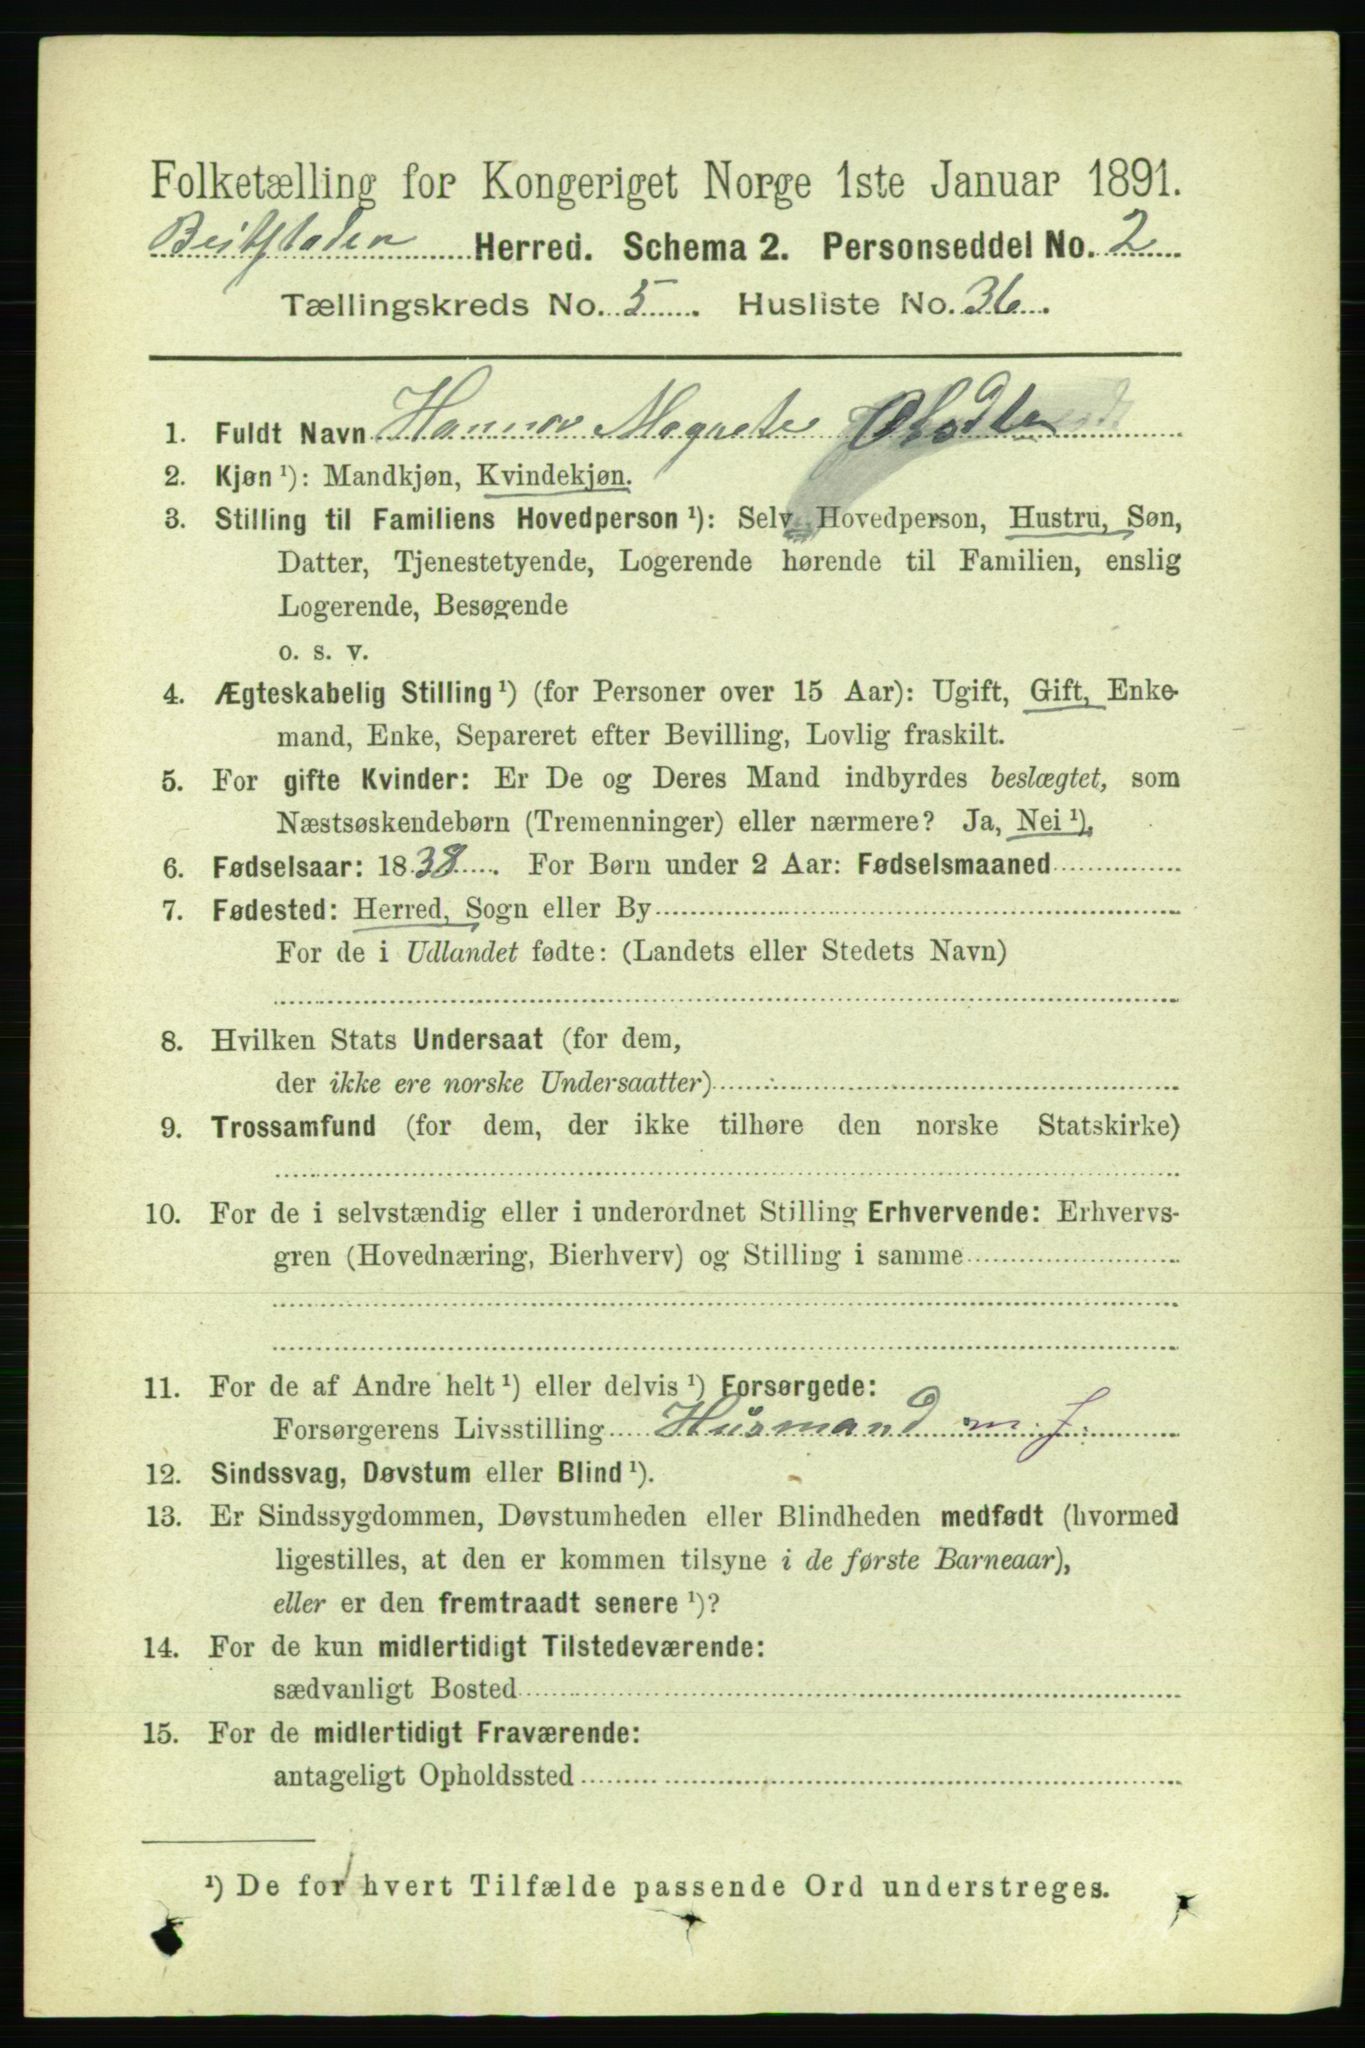 Folketælling for Kongeriget Norge 1ste Januar 1891.
Beitstaden Herred. Schema 2. Personseddel No. 2
Tællingskreds No. 5. Husliste No. 36.
1. Fuldt Navn Hanna Magrete
2. Kjøn ¹): Mandkjøn, Kvindekjøn.
3. Stilling til Familiens Hovedperson ¹): Selv Hovedperson, Hustru, Søn,
Datter, Tjenestetyende, Logerende hørende til Familien, enslig
Logerende, Besøgende
o. s. v.
4. Ægteskabelig Stilling ¹) (for Personer over 15 Aar): Ugift, Gift, Enke-
mand, Enke, Separeret efter Bevilling, Lovlig fraskilt.
5. For gifte Kvinder: Er De og Deres Mand indbyrdes beslægtet, som
Næstsøskendebørn (Tremenninger) eller nærmere? Ja, Nei ¹),
6. Fødselsaar: 1838. For Børn under 2 Aar: Fødselsmaaned
7. Fødested: Herred, Sogn eller By
For de i Udlandet fødte: (Landets eller Stedets Navn)
8. Hvilken Stats Undersaat (for dem,
der ikke ere norske Undersaatter)
9. Trossamfund (for dem, der ikke tilhøre den norske Statskirke)
10. For de i selvstændig eller i underordnet Stilling Erhvervende: Erhvervs-
gren (Hovednæring, Bierhverv) og Stilling i samme
11. For de af Andre helt ¹) eller delvis ¹) Forsørgede:
Forsørgerens Livsstilling Husmand m. j.
12. Sindssvag, Døvstum eller Blind ¹).
13. Er Sindssygdommen, Døvstumheden eller Blindheden medfødt (hvormed
ligestilles, at den er kommen tilsyne i de første Barneaar),
eller er den fremtraadt senere ¹)?
14. For de kun midlertidigt Tilstedeværende:
sædvanligt Bosted
15. For de midlertidigt Fraværende:
antageligt Opholdssted
¹) De for hvert Tilfælde passende Ord understreges.